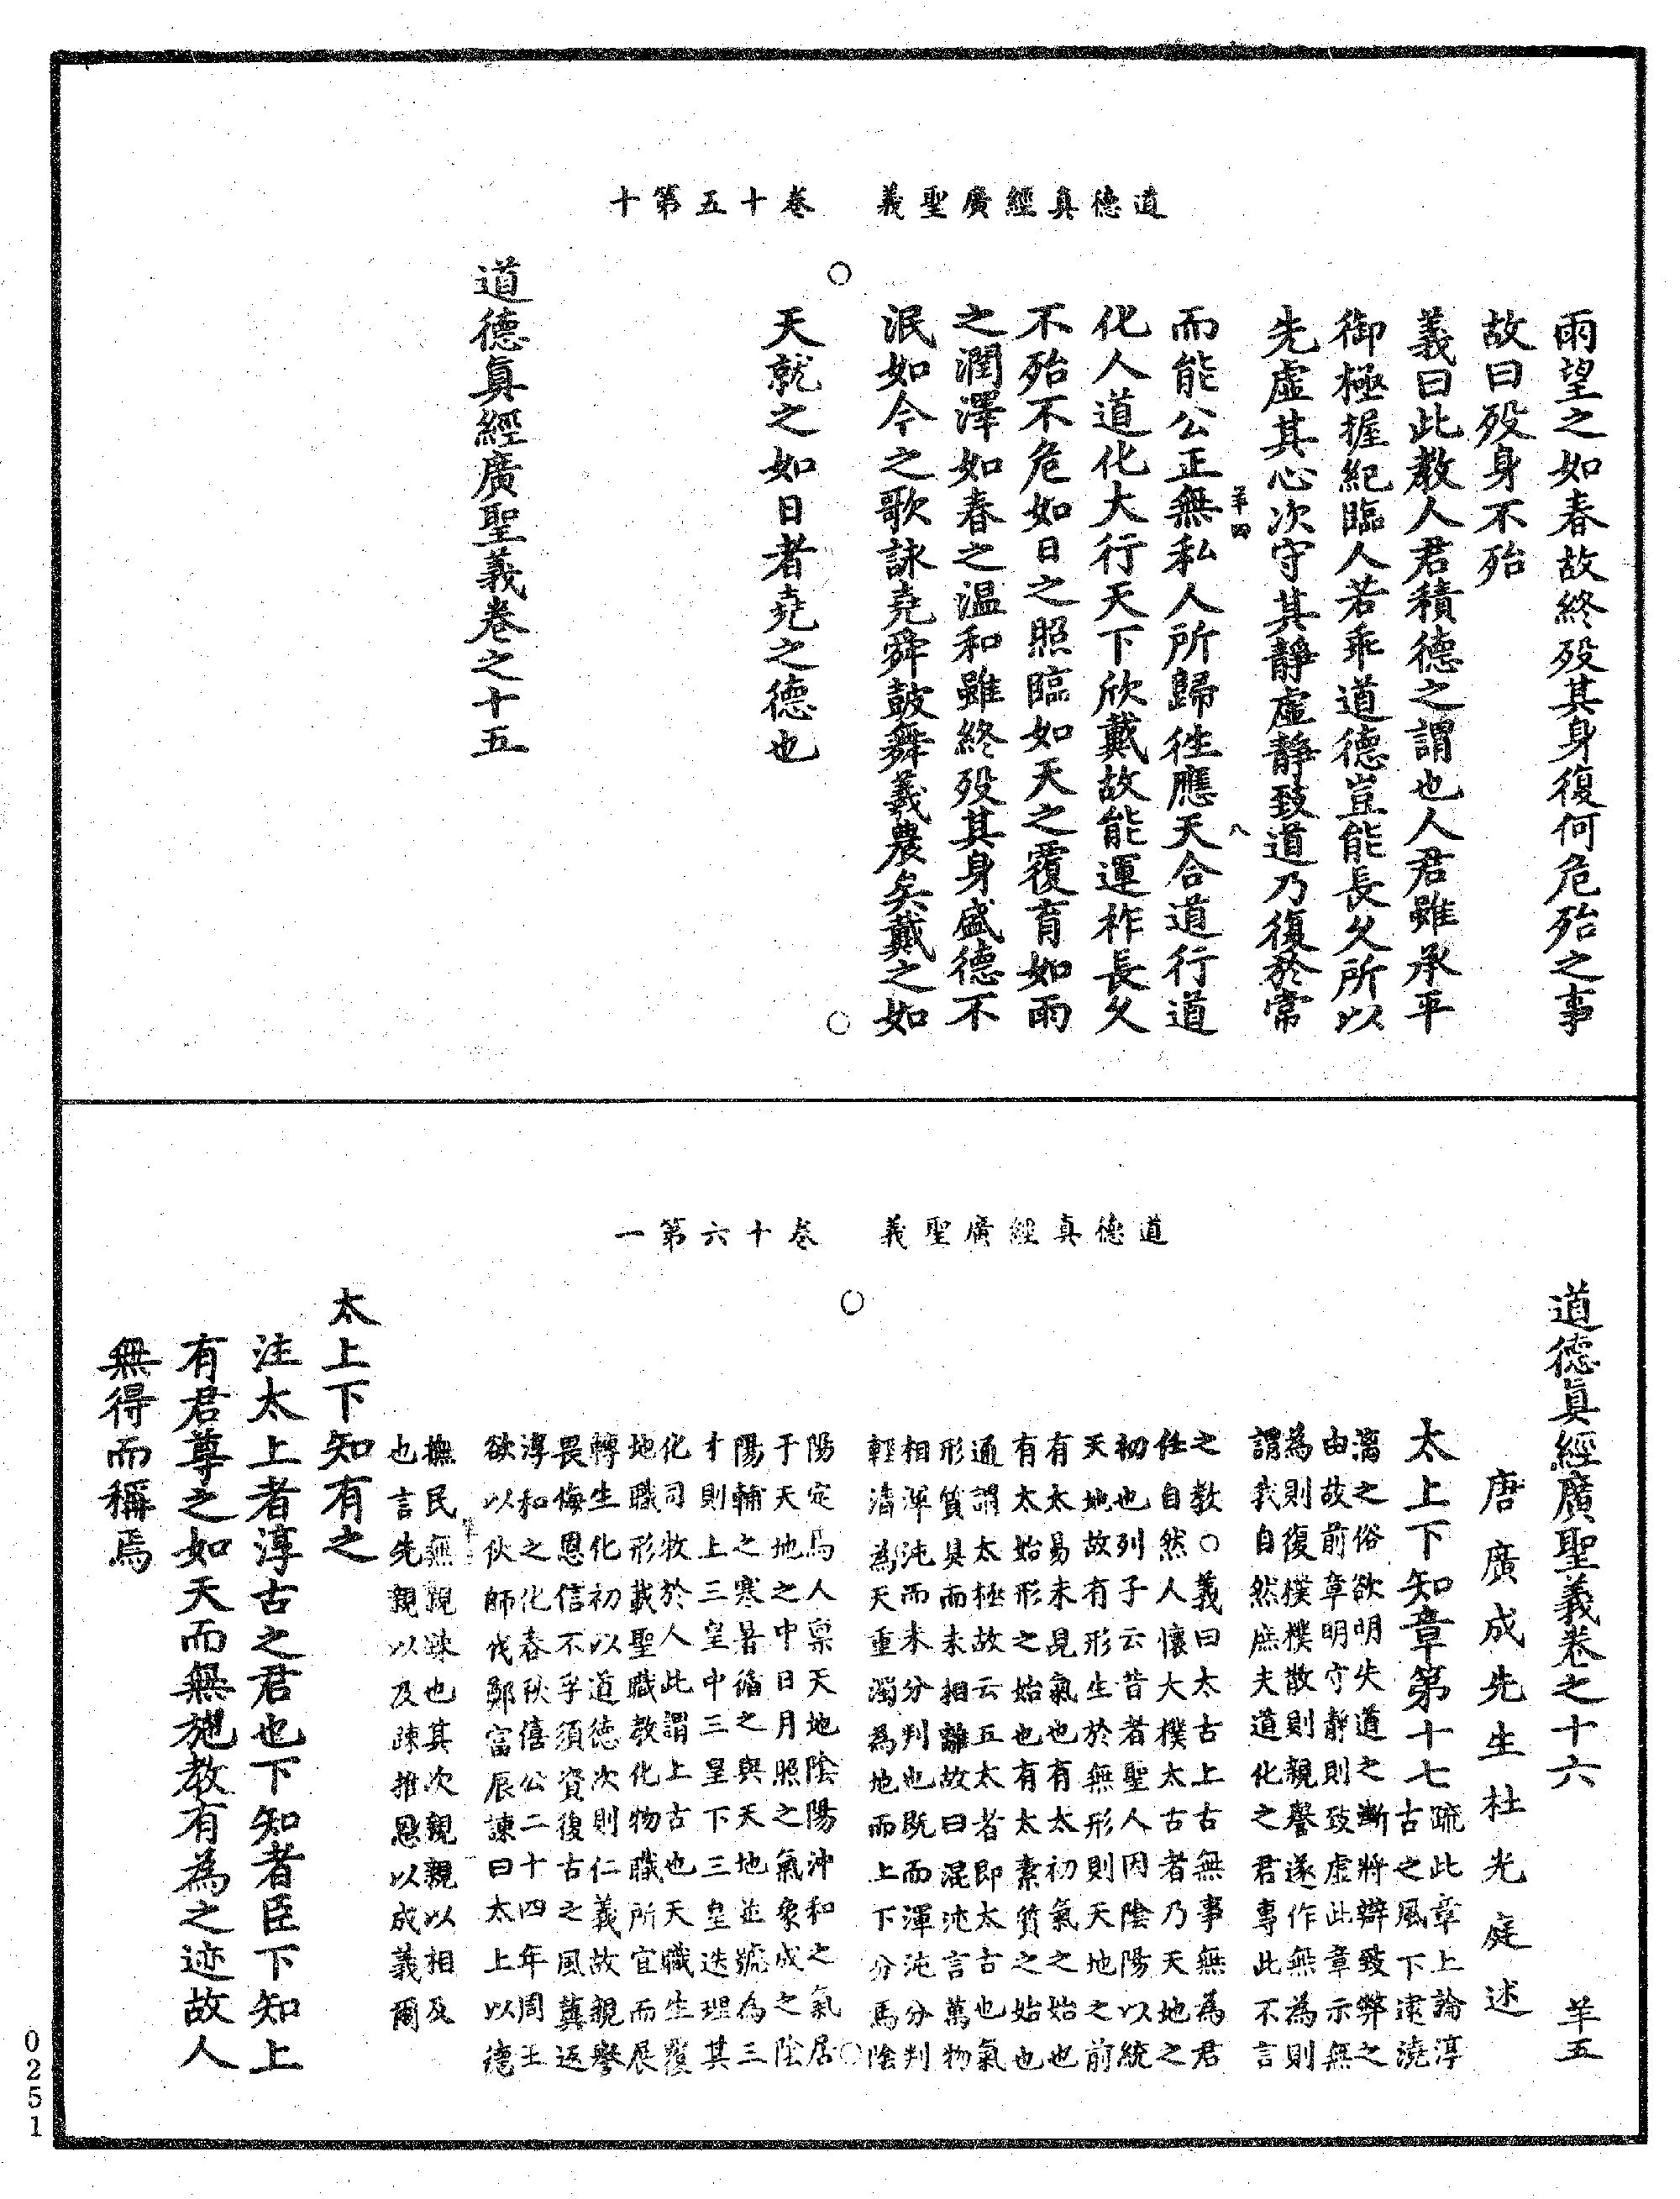 道德真經廣聖義　卷十五第十
雨望之如春故終歿其身復何危殆之事
故曰歿身不殆
義曰此教人君積德之謂也人君雖承平
御極握紀臨人若乖道德豈能長久所以
先虛其心次守其靜虛靜致道乃復於常
羊四　八
而能公正無私人所歸往應天合道行道
化人道化大行天下欣戴故能運祚長久
不殆不危如日之照臨如天之覆育如雨
之潤澤如春之温和雖終歿其身盛德不
泯如今之歌詠堯舜鼓舞羲農矣戴之如
○　○
天就之如日者堯之德也
道德真經廣聖義卷之十五
道德真經廣聖義　卷十六第一
道德真經廣聖義卷之十六　羊五
唐廣成先生杜光庭述
太上下知章第十七
疏此章上論淳
古之風下逮澆
漓之俗欲明失道之漸將辯致弊之
由故前章明守靜則致虛此章示無
為則復樸樸散則親譽遂作無為則
謂我自然庶夫道化之君專此不言
之教○義曰太古上古無事無為君
任自然人懷大樸太古者乃天地之
初也列子云昔者聖人因陰陽以統
天地故有形生於無形則天地之前
有太易未見氣也有太初氣之始也
有太始形之始也有太素質之始也
通謂太極故云五太者即太古也氣
形質具而未相離故曰混沌言萬物
相渾沌而未分判也既而渾沌分判
輕清為天重濁為地而上下分焉陰
○　○
陽定焉人禀天地陰陽沖和之氣居
于天地之中日月照之氣象成之陰
陽輔之寒暑循之與天地並號為三
才則上三皇中三皇下三皇迭理其
化司牧於人此謂上古也天職生覆
地職形載聖職教化物職所宜而展
轉生化初以道德次則仁義故親譽
畏侮恩信不孚須資復古之風冀返
淳和之化春秋僖公二十四年周王
欲以狄師伐鄭富辰諫曰太上以德
撫民無親踈也其次親親以相及
也言先親以及踈推恩以成義爾
太上下知有之
注太上者淳古之君也下知者臣下知上
有君尊之如天而無施教有為之迹故人
無得而稱焉
0251